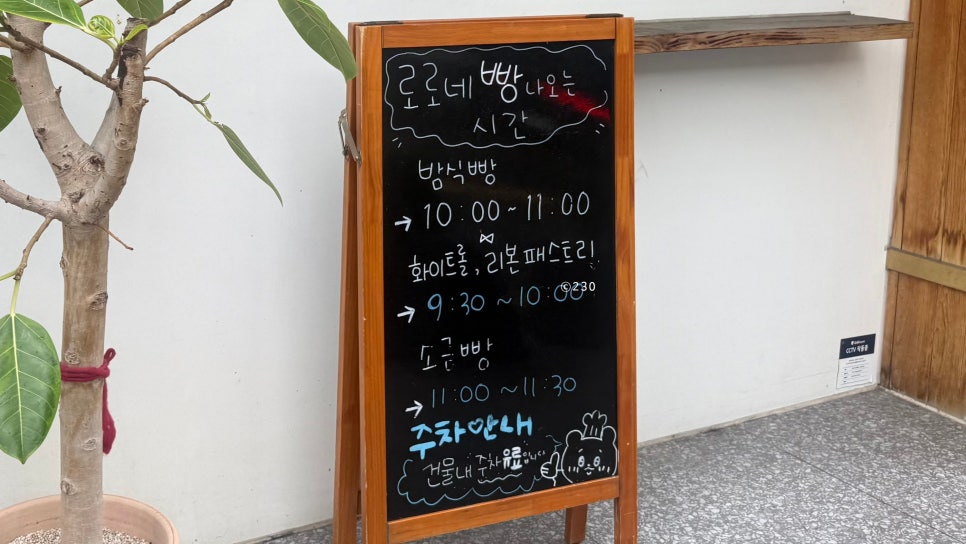 로로네 빵 나오는
시간
밤식빵
→ 10:00 ~ 11:00
화이트롤, 리본패스트리
→ 9:30 ~ 10:00
©230
소금빵
→ 11:00 ~ 11:30
주차안내
건물내 주차 유료입니다
CCTV 작동중